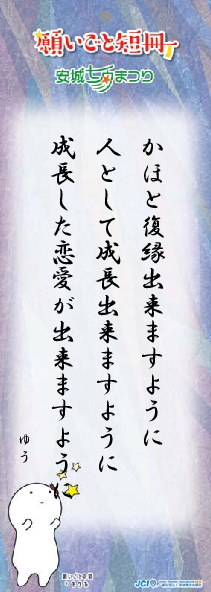 願いごと短冊
安城七夕まつり
かほと復縁出来ますように
人として成長出来ますように
成長した恋愛が出来ますように
ゆう
願いごとの国
JCI